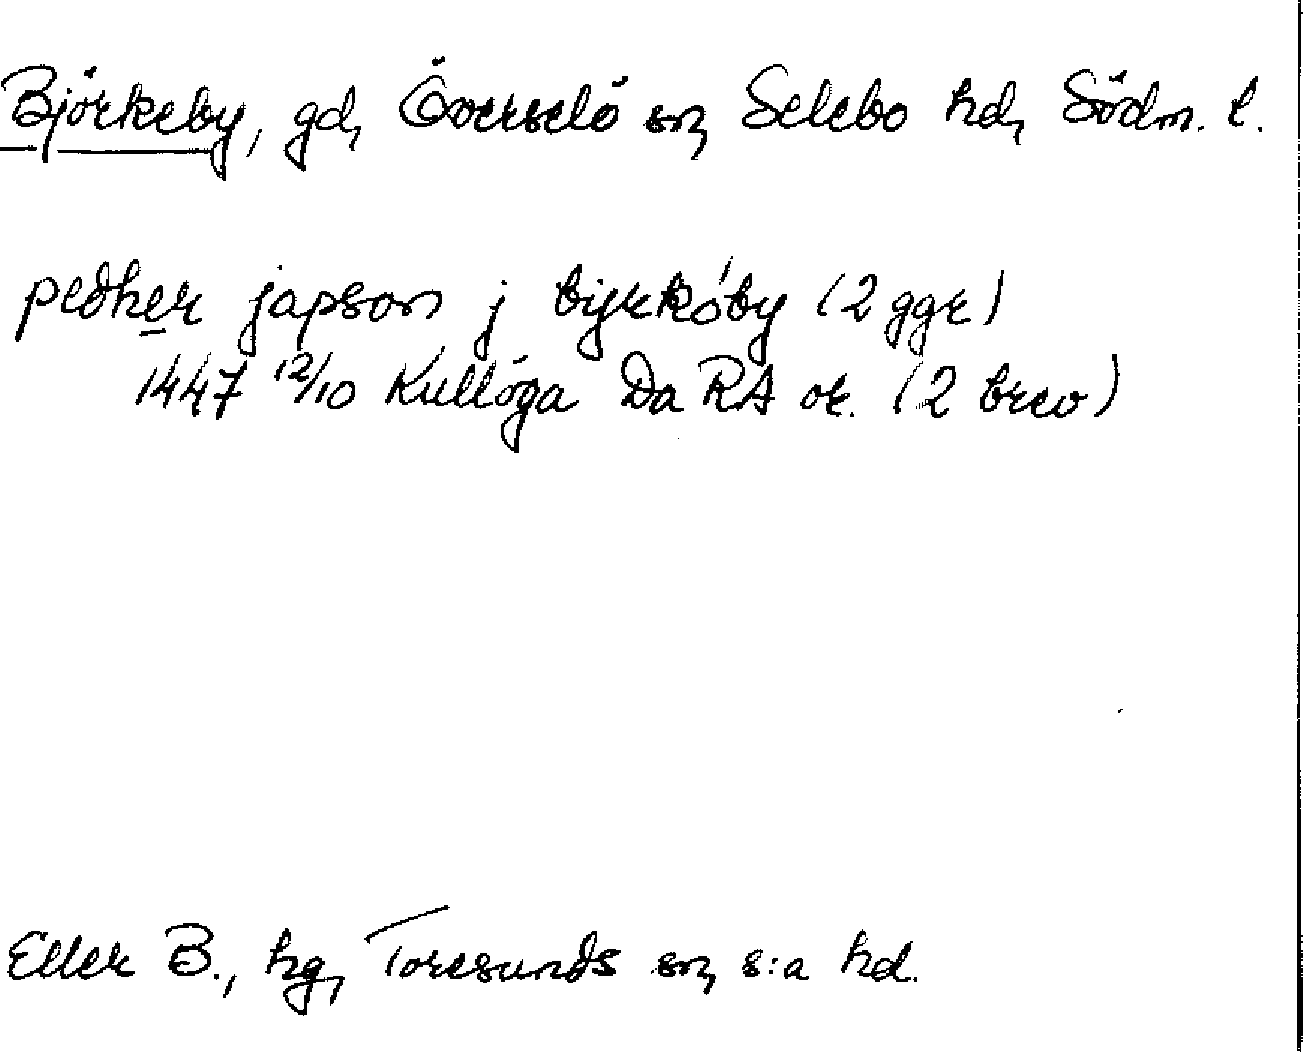 Björkeby, gd, Överselö sn, Selebo hd, Södm. l.
pedher japson j byrkøby (2 ggr)
1447 12/10 Kulløga Da RA or. (2 brev)
Eller B., hg, Toresunds sn, s:a hd.